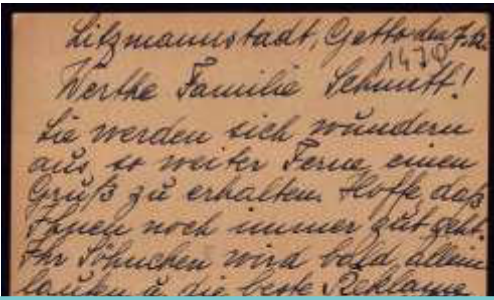 Litzmannstadt, Getto den 7.12.
1470
Werthe Familie Schmitt!
Sie werden sich wundern
aus so weiter Ferne einen
Gruß zu erhalten. Hoffe, daß
Ihnen noch immer gut geht.
Ihr Söhnchen wird bald allein
laufen u. die beste Reklame